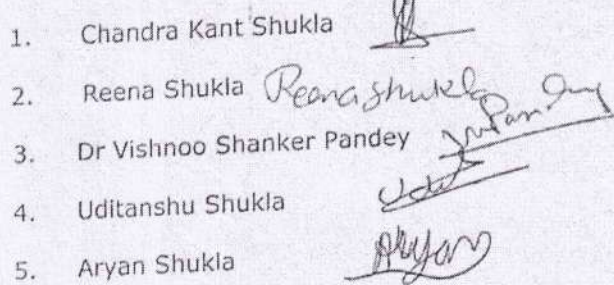 1. Chandra Kant Shukla
2. Reena Shukla Reena Shukla
3. Dr Vishnoo Shanker Pandey
4. Uditanshu Shukla
5. Aryan Shukla Aryan